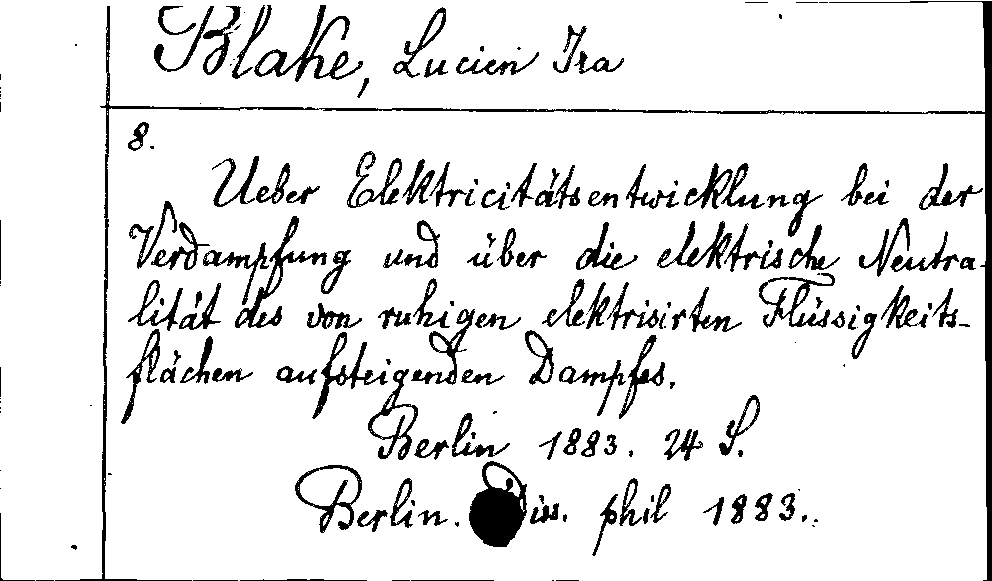 Blake, Lucien Ira
8.
Ueber Elektricitätsentwicklung bei der
Verdampfung und über die elektrische Neutra-
lität des von ruhigen elektrisirten Flüssigkeits-
flächen aufsteigenden Dampfes.
Berlin 1883. 24 S.
Berlin. Diss. phil 1883.